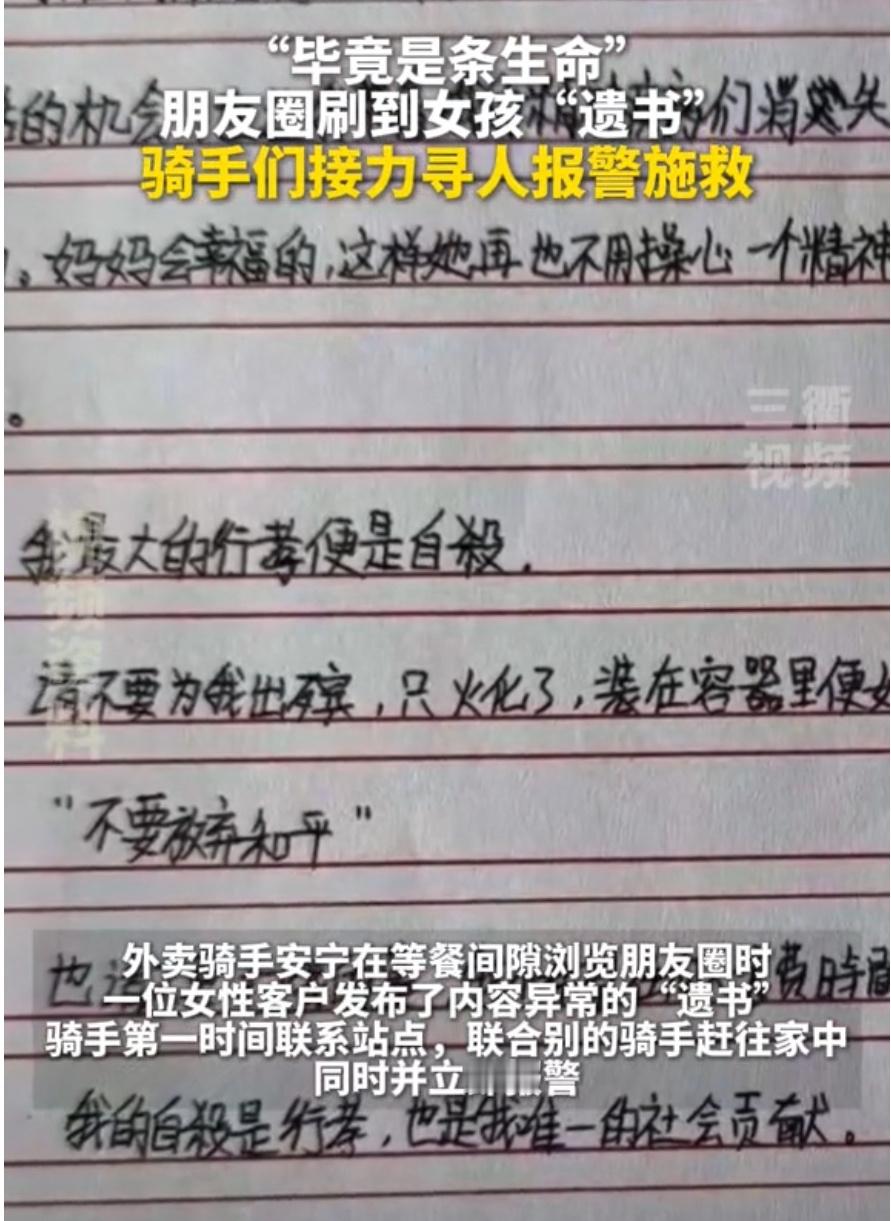 的机会
“毕竟是条生命”
朋友圈刷到女孩“遗书”
们消失
骑手们接力寻人报警施救
。妈妈会幸福的，这样她再也不用操心一个精神
。
三衢
视频
我最大的行孝便是自殺.
请不要为我出殡，只火化了，装在容器里便好
"不要放弃和平"
外卖骑手安宁在等餐间隙浏览朋友圈时
也
一位女性客户发布了内容异常的“遗书”
费時
骑手第一时间联系站点，联合别的骑手赶往家中
同时并立 报警
我的自殺是行孝，也是我唯一的社会贡献。